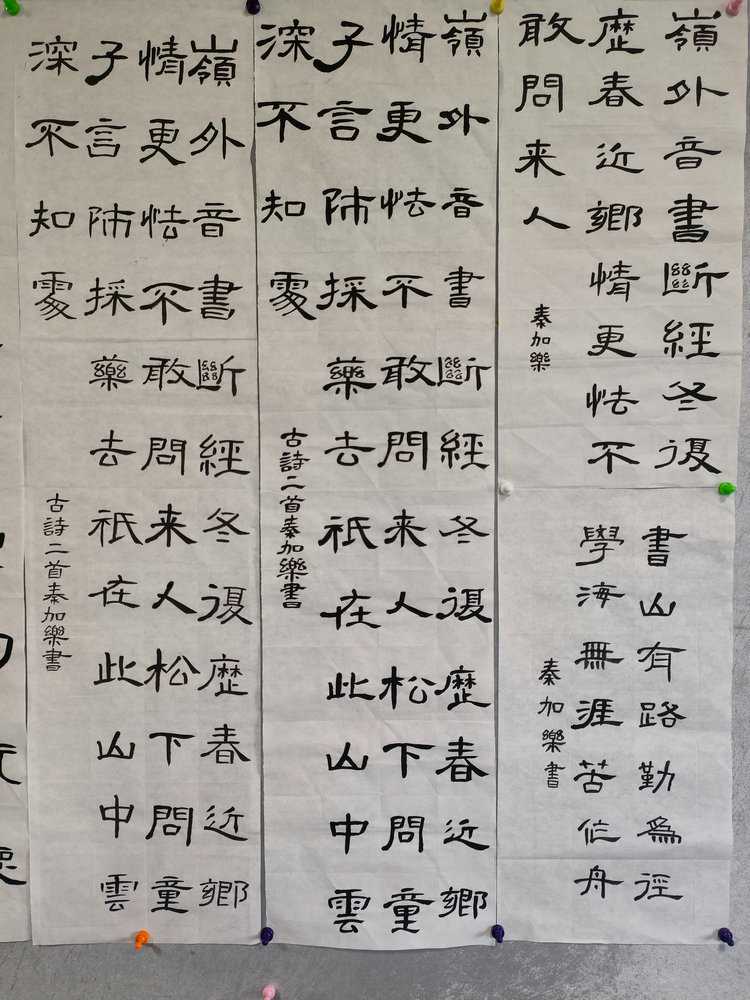 嶺外音書斷經冬復
歷春近鄉情更怯不
敢問来人
秦加樂
書山有路勤為徑
學海無涯苦作舟
秦加樂書
嶺外音書斷經冬復歷春近鄉
情更怯不敢問来人松下問童
子言師採藥去祇在此山中雲
深不知處
古詩二首秦加樂書
嶺外音書斷經冬復歷春近鄉
情更怯不敢問来人松下問童
子言師採藥去祇在此山中雲
深不知處
古詩二首秦加樂書